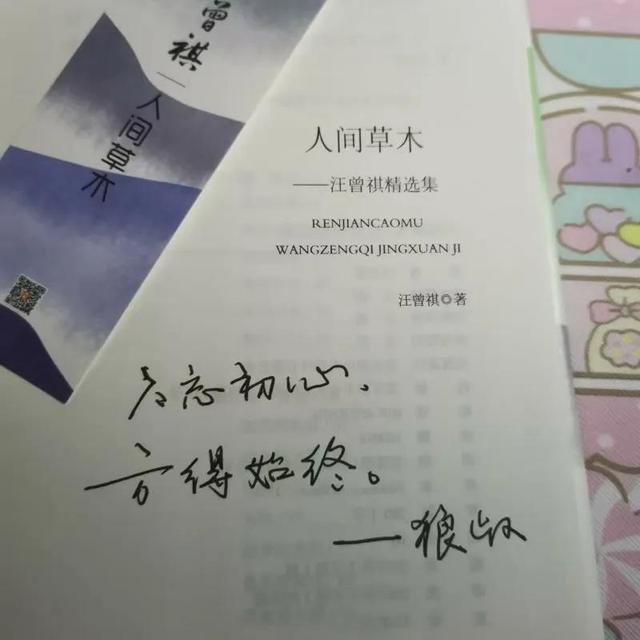 曾祺|人间草木
人间草木
——汪曾祺精选集
RENJIANCAOMU
WANGZENGQI JINGXUAN JI
汪曾祺◎著
勿忘初心、
方得始终。
—狼叔